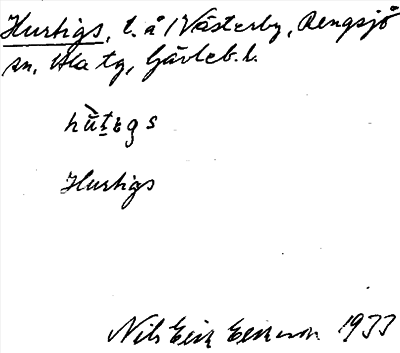 Hurtigs, t. å 1 Västerby, Rengsjö
sn, Ala tg, Gävleb. l.
hùtegs
Hurtigs
Nils Eric Ericsson 1933